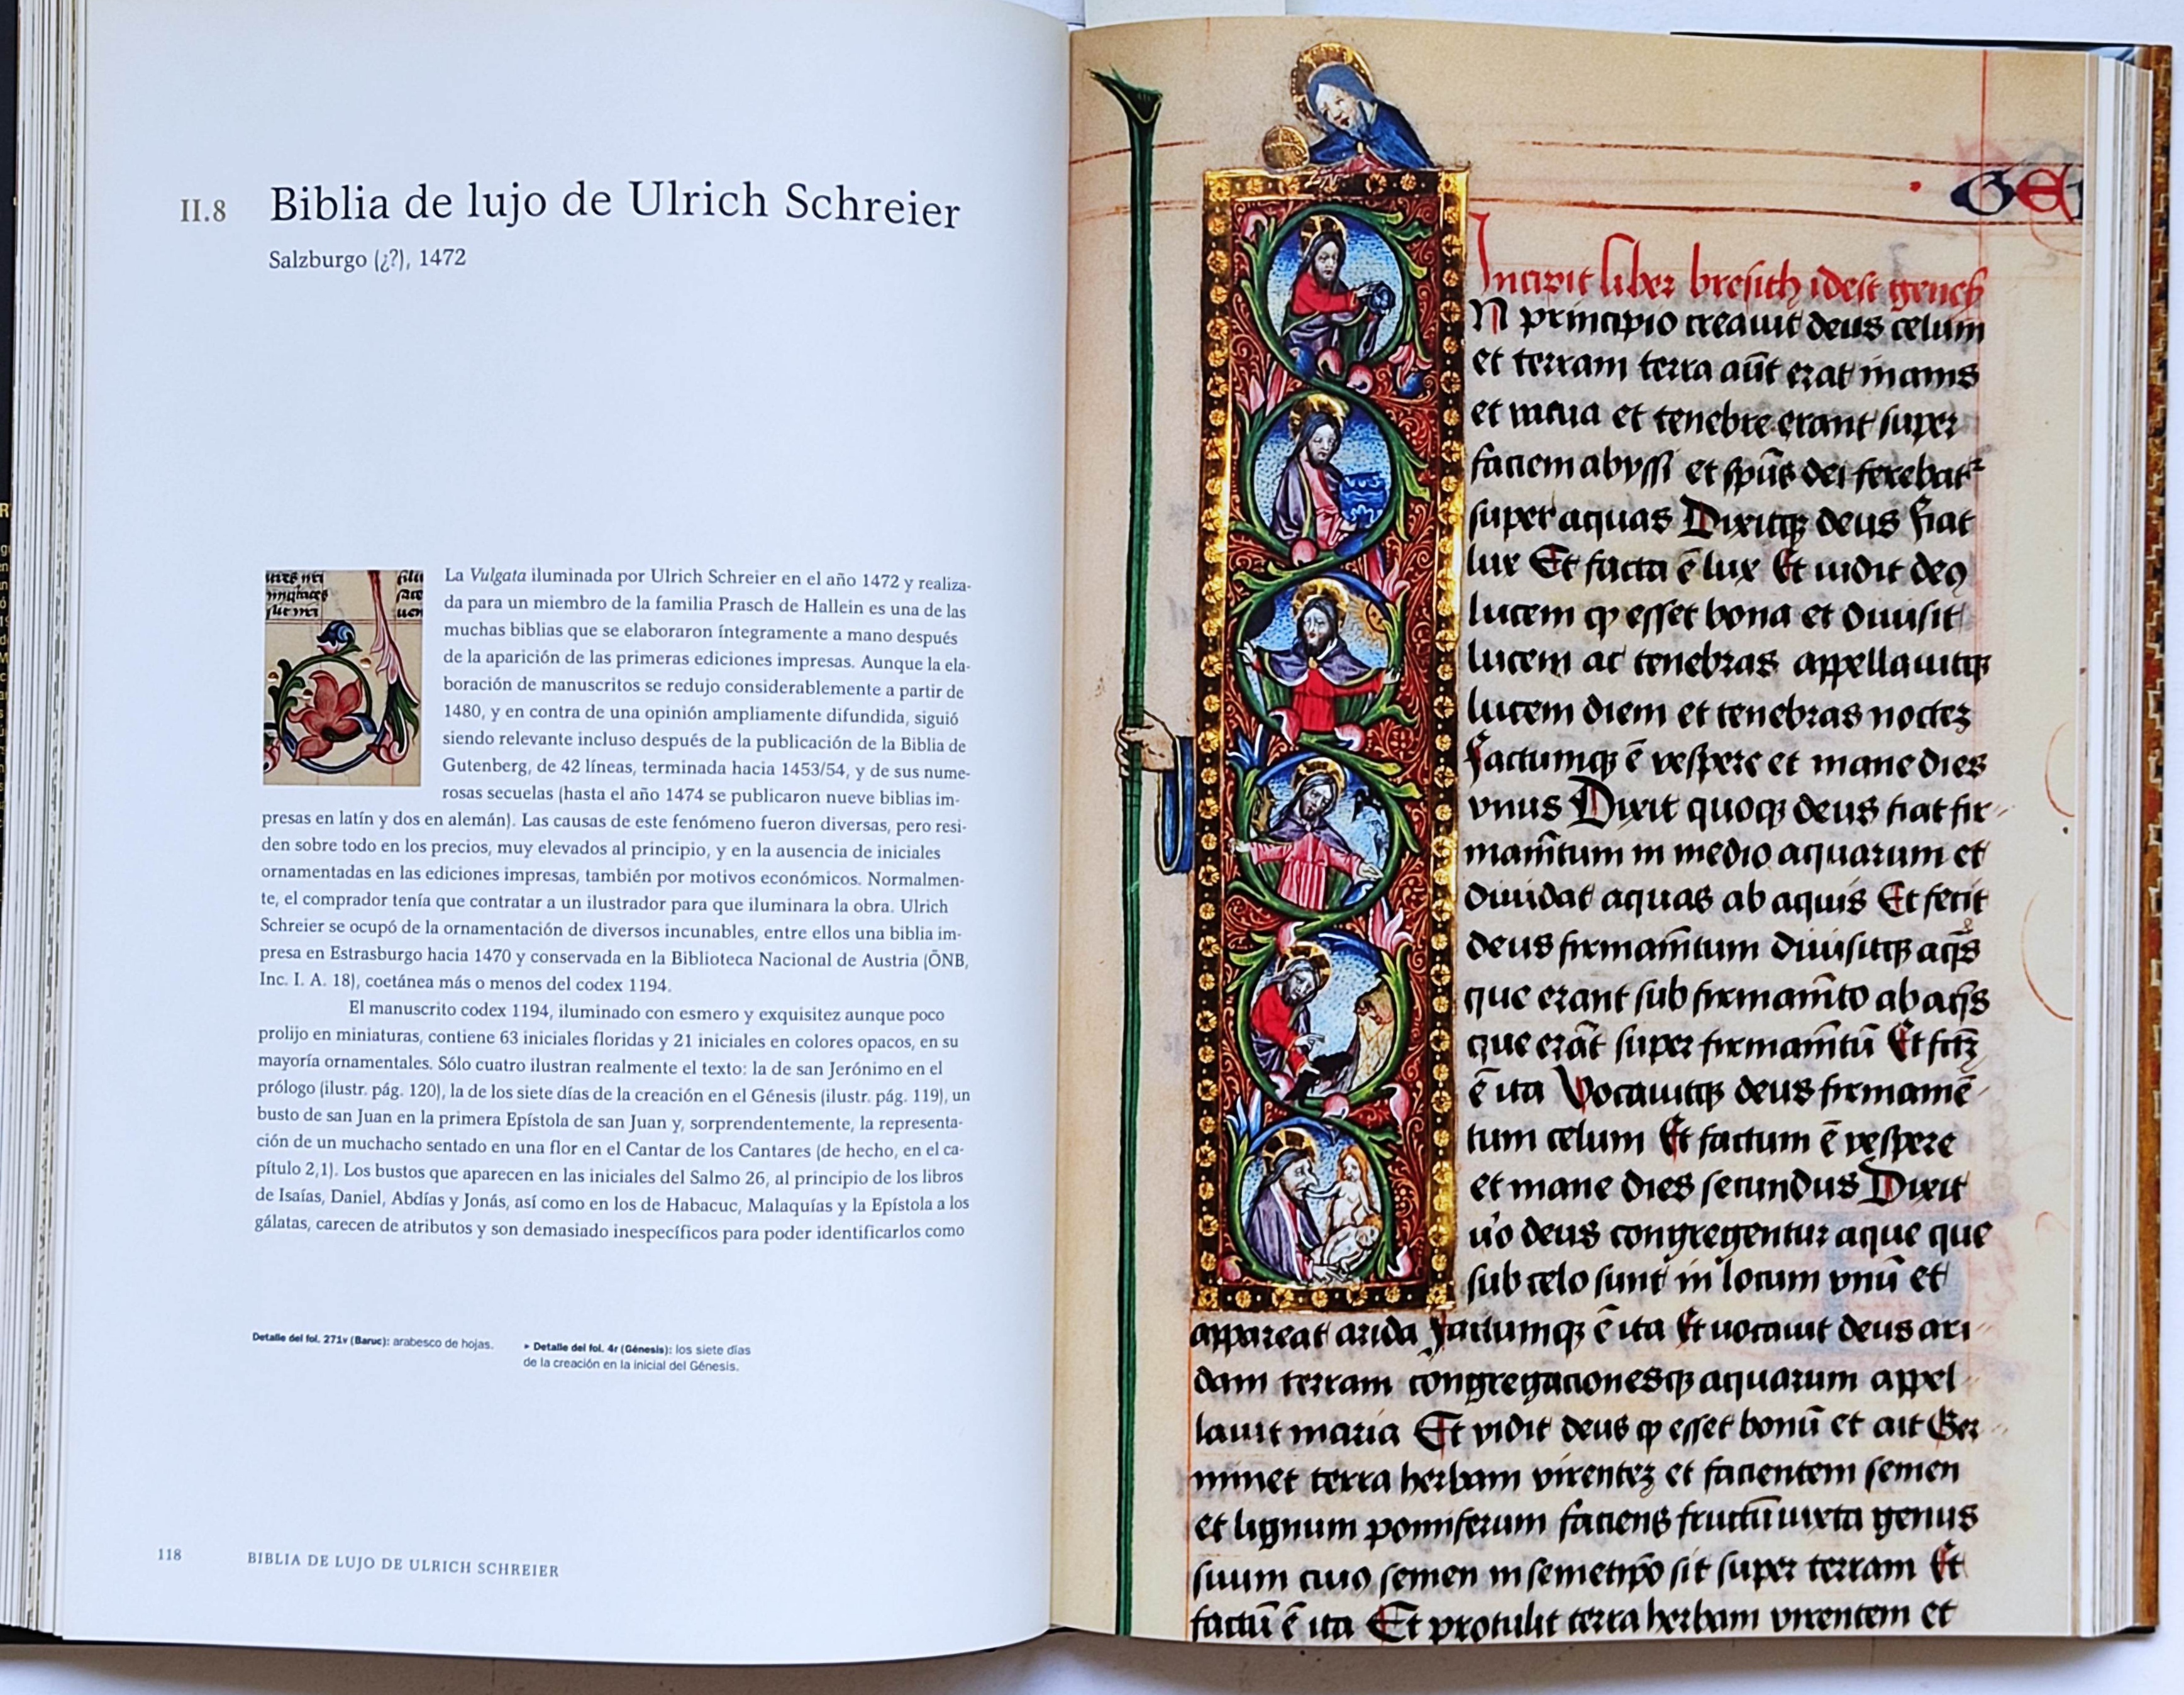 II.8 Biblia de lujo de Ulrich Schreier
Salzburgo (¿?), 1472
La Vulgata iluminada por Ulrich Schreier en el año 1472 y realiza-
da para un miembro de la familia Prasch de Hallein es una de las
muchas biblias que se elaboraron íntegramente a mano después
de la aparición de las primeras ediciones impresas. Aunque la ela-
boración de manuscritos se redujo considerablemente a partir de
1480, y en contra de una opinión ampliamente difundida, siguió
siendo relevante incluso después de la publicación de la Biblia de
Gutenberg, de 42 líneas, terminada hacia 1453/54, y de sus nume-
rosas secuelas (hasta el año 1474 se publicaron nueve biblias im-
presas en latín y dos en alemán). Las causas de este fenómeno fueron diversas, pero resi-
den sobre todo en los precios, muy elevados al principio, y en la ausencia de iniciales
ornamentadas en las ediciones impresas, también por motivos económicos. Normalmen-
te, el comprador tenía que contratar a un ilustrador para que iluminara la obra. Ulrich
Schreier se ocupó de la ornamentación de diversos incunables, entre ellos una biblia im-
presa en Estrasburgo hacia 1470 y conservada en la Biblioteca Nacional de Austria (ÖNB,
Inc. I. A. 18), coetánea más o menos del codex 1194.
El manuscrito codex 1194, iluminado con esmero y exquisitez aunque poco
prolijo en miniaturas, contiene 63 iniciales floridas y 21 iniciales en colores opacos, en su
mayoría ornamentales. Sólo cuatro ilustran realmente el texto: la de san Jerónimo en el
prólogo (ilustr. pág. 120), la de los siete días de la creación en el Génesis (ilustr. pág. 119), un
busto de san Juan en la primera Epístola de san Juan y, sorprendentemente, la representa-
ción de un muchacho sentado en una flor en el Cantar de los Cantares (de hecho, en el ca-
pítulo 2,1). Los bustos que aparecen en las iniciales del Salmo 26, al principio de los libros
de Isaías, Daniel, Abdías y Jonás, así como en los de Habacuc, Malaquías y la Epístola a los
gálatas, carecen de atributos y son demasiado inespecíficos para poder identificarlos como
Detalle del fol. 271v (Baruc): arabesco de hojas.
▸ Detalle del fol. 4r (Génesis): los siete días
de la creación en la inicial del Génesis.
118 BIBLIA DE LUJO DE ULRICH SCHREIER
GE
Incipit liber bresith idest genes
N principio creauit deus celum
et terram terra aūt erat inanis
et uacua et tenebre erant super
faciem abyssi et spūs dei ferebatr
super aquas Dixitqꝫ deus fiat
lux Et facta ē lux Et uidit deꝰ
lucem ꝙ esset bona et diuisit
lucem ac tenebras appellauitqꝫ
lucem diem et tenebras nocteꝫ
factumqꝫ ē vespere et mane dies
vnus Dixit quoqꝫ deus fiat fir-
mam̄tum in medio aquarum et
diuidat aquas ab aquis Et fecit
deus firmam̄tum diuisitqꝫ aqs̄
que erant sub firmam̄to ab aqs̄
que erāt super firmam̄tū Et fc̄ꝫ
ē ita Vocauitqꝫ deus firmamē-
tum celum Et factum ē vespere
et mane dies secundus Dixit
uo deus congregentur aque que
sub celo sunt in locum vnū et
appareat arida factumqꝫ ē ita Et uocauit deus ari-
dam terram congregacionesqꝫ aquarum appel-
lauit maria Et vidit deus ꝙ esset bonū et ait Ger-
minet terra herbam virenteꝫ et facientem semen
et lignum pomiferum faciens fructū iuxta genus
suum cuiꝰ semen in semetip̄o sit super terram Et
factū ē ita Et protulit terra herbam virentem et